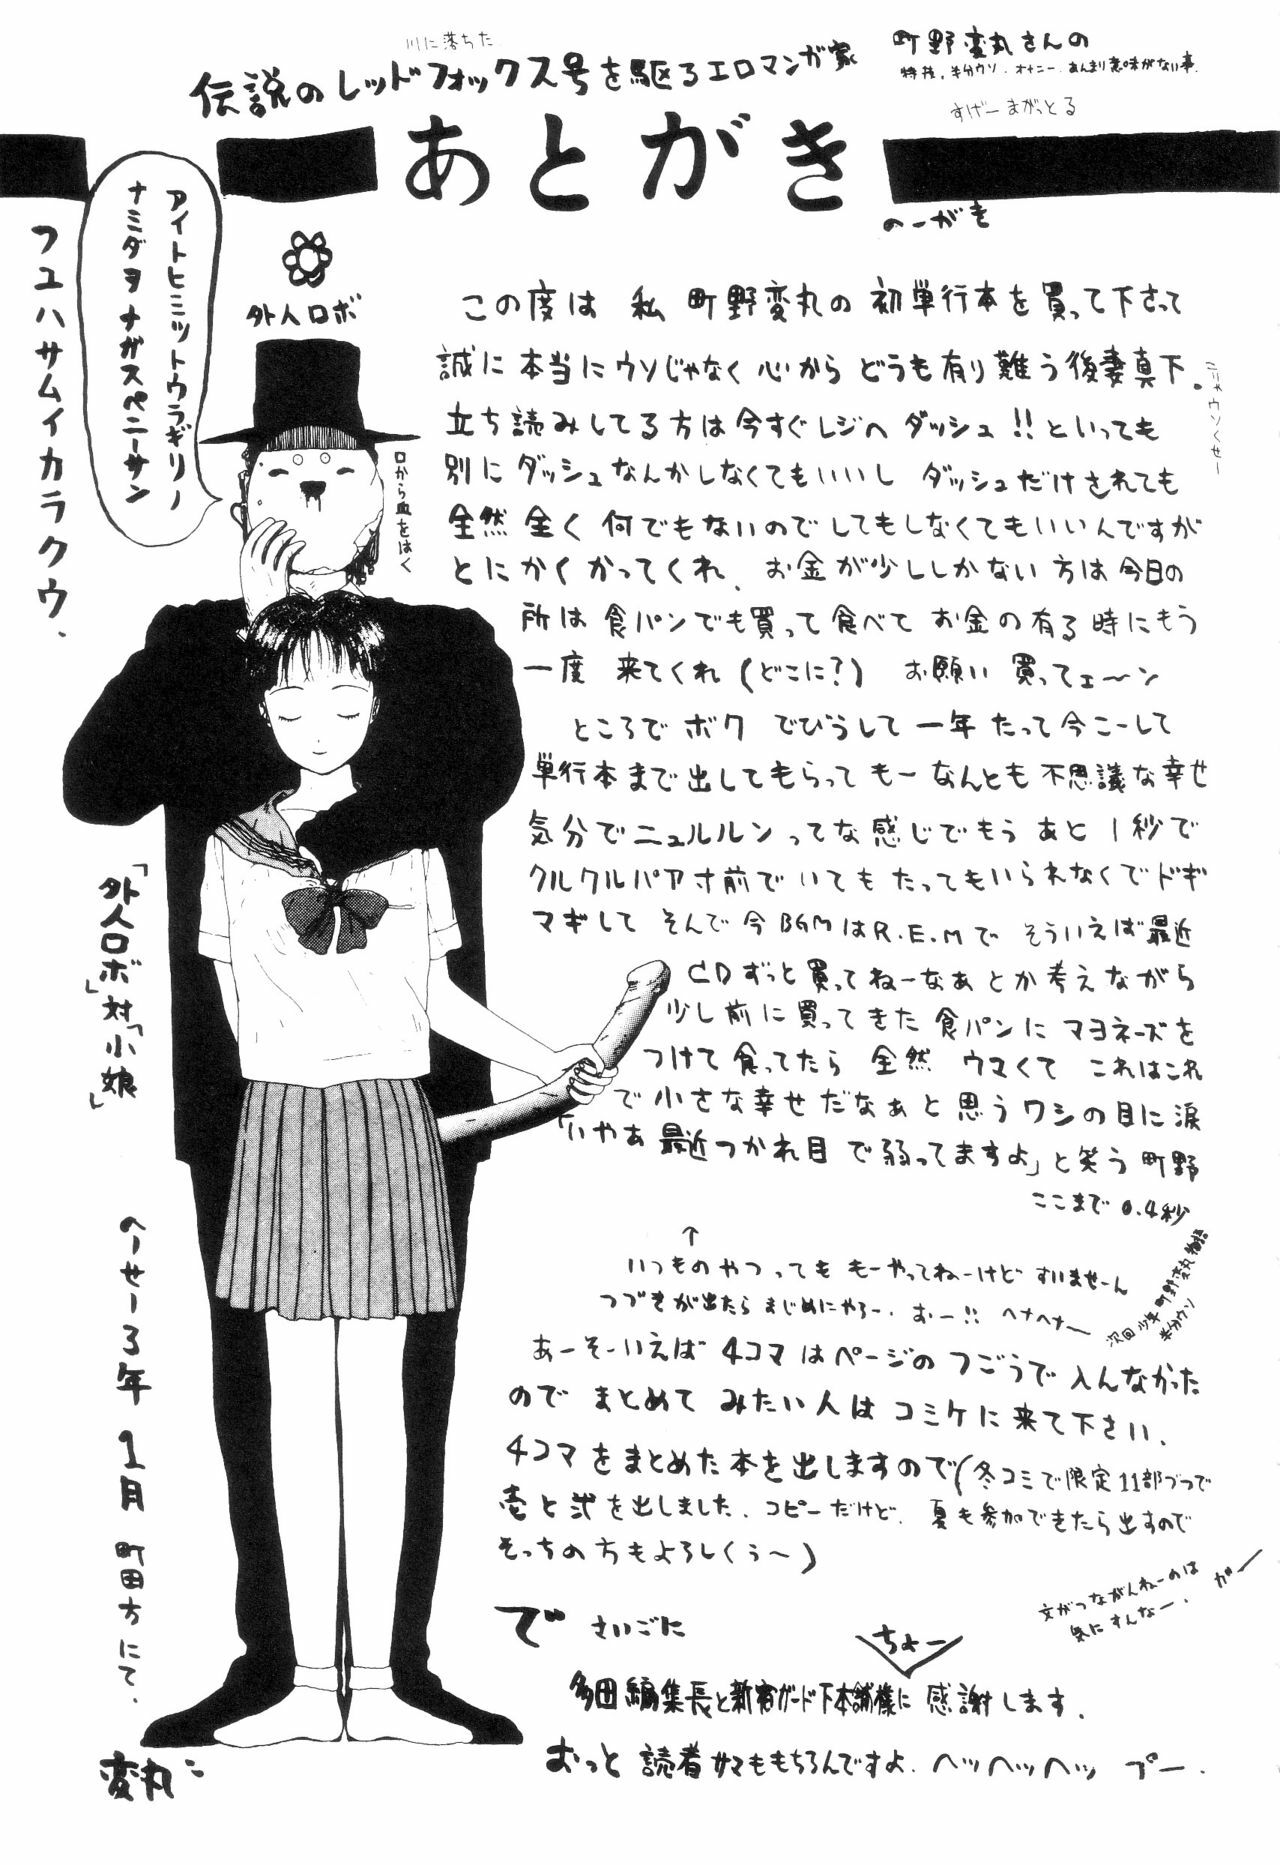 川に落ちた
伝説のレッドフォックス号を駆るエロマンガ家
町野変丸さんの
特技。半分ウソ.オナニー.あんまり意味がない事.
すげーまがっとる
あとがき
のーがき
この度は 私 町野変丸の 初単行本を買って下さって
誠に本当にウソじゃなく心から どうも有り難う後妻真下.
こりゃウソくせー
立ち読みしてる方は今すぐレジへ ダッシュ!!といっても
別にダッシュなんかしなくてもいいし ダッシュだけされても
全然 全く 何でもないのでしてもしなくてもいいんですが
とにかくかってくれ. お金が少ししかない方は今日の
所は食パンでも買って食べて お金の有る時にもう
一度 来てくれ(どこに?) お願い 買ってェ〜ン
ところでボク でびうして 一年 たって今こーして
単行本まで出してもらって もーなんとも不思議な幸せ
気分でニュルルンってな感じでもう あと1秒で
クルクルパア寸前で いてもたってもいられなくてドギ
マギして そんで今BGMはR.E.Mで そういえば最近
CDずっと買ってねーなぁとか考えながら
少し前に買ってきた食パンにマヨネーズを
つけて食ってたら 全然 ウマくて これはこれ
で小さな幸せだなぁと思うワシの目に涙
「いやあ最近つかれ目で弱ってますよ」と笑う町野
ここまで0.4秒
↑
いつものやつっても もーやってねーけど すいませーん
つづきが出たら まじめにやろー.おー!! ヘナヘナ〜
次回 少年町野変丸物語
半分ウソ
あーそーいえば 4コマはページのつごうで入んなかった
のでまとめて みたい人は コミケに来て下さい.
4コマをまとめた本を出しますので(冬コミで限定11部づつで
壱と弐を出しました.コピーだけど.夏も参加できたら出すので
そっちの方もよろしくぅ〜)
文がつながんねーのは
気にすんなー.
がー
で さいごに
ちょー
多田編集長と新宿ガード下本舗様に 感謝します.
おっと 読者サマももちろんですよ.ヘッヘッヘッ プー.
アイトヒミツトウラギリノ
ナミダヲナガスペニーサン
フユハサムイカラクウ.
外人ロボ
口から血をはく
「外人ロボ」対「小娘」
へーせー3年 1月 町田方にて.
変丸